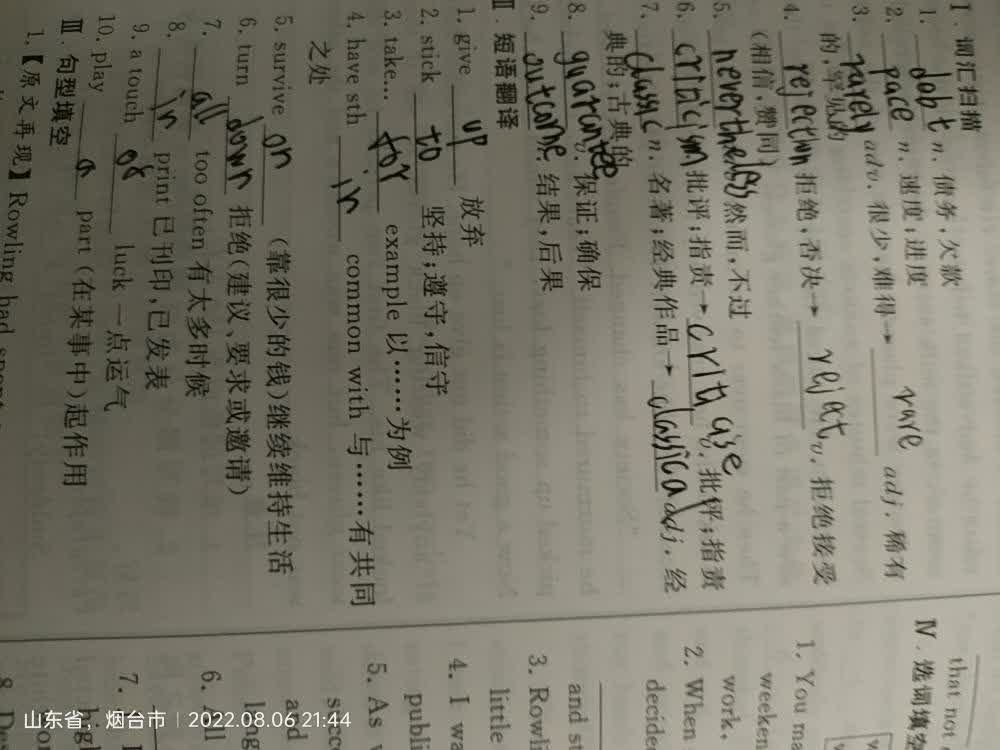 Ⅰ. 词汇扫描
1. dobt n. 债务,欠款
2. pace n. 速度;进度
3. rarely adv. 很少,难得→ rare adj. 稀有
的,罕见的
4. rejection 拒绝,否决→ reject v. 拒绝接受
(相信,赞同)
5. nevertheless 然而,不过
6. criticism 批评;指责→ critase v. 批评;指责
7. classic n. 名著;经典作品→ classica adj. 经
典的;古典的
8. guarantee v. 保证;确保
9. outcome 结果,后果
Ⅱ. 短语翻译
1. give up 放弃
2. stick to 坚持;遵守,信守
3. take... for example 以……为例
4. have sth in common with 与……有共同
之处
5. survive on (靠很少的钱)继续维持生活
6. turn down 拒绝(建议、要求或邀请)
7. all too often 有太多时候
8. in print 已刊印,已发表
9. a touch of luck 一点运气
10. play a part (在某事中)起作用
Ⅲ. 句型填空
1.【原文再现】Rowling had spent
that not
Ⅳ. 选词填空
1. You ma
weeken
work.
2. When
decided
3. Rowli
and st
little
4. I wa
publi
5. As
succ
and
6. All
long
7.
8. Des
山东省，烟台市 | 2022.08.06 21:44